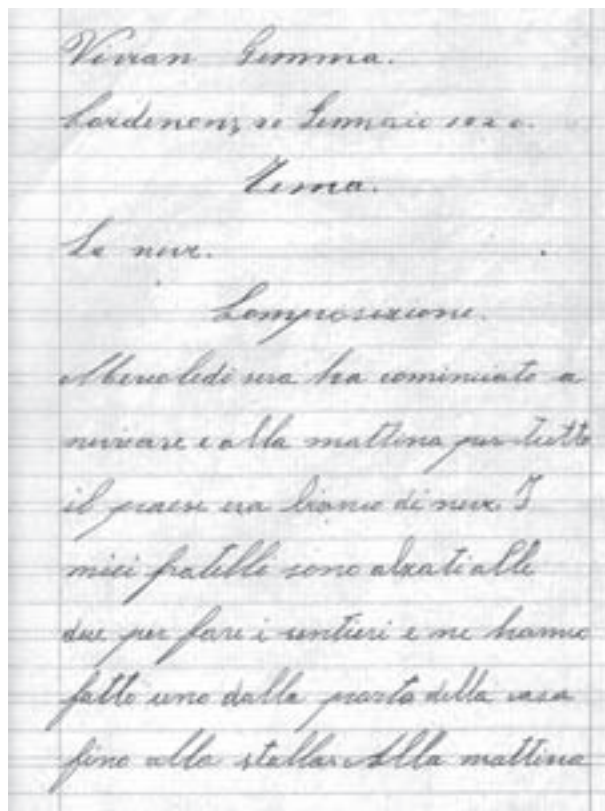 Vivian Gemma.
Cordenons, 20 Gennaio 192
Tema.
La neve.
Composizione.
Mercoledì sera ha cominciato a
nevicare e alla mattina per tutto
il paese era bianco di neve. I
miei fratelli sono alzati alle
due per fare i sentieri e ne hanno
fatto uno dalla porta della casa
fino alla stalla. Alla mattina